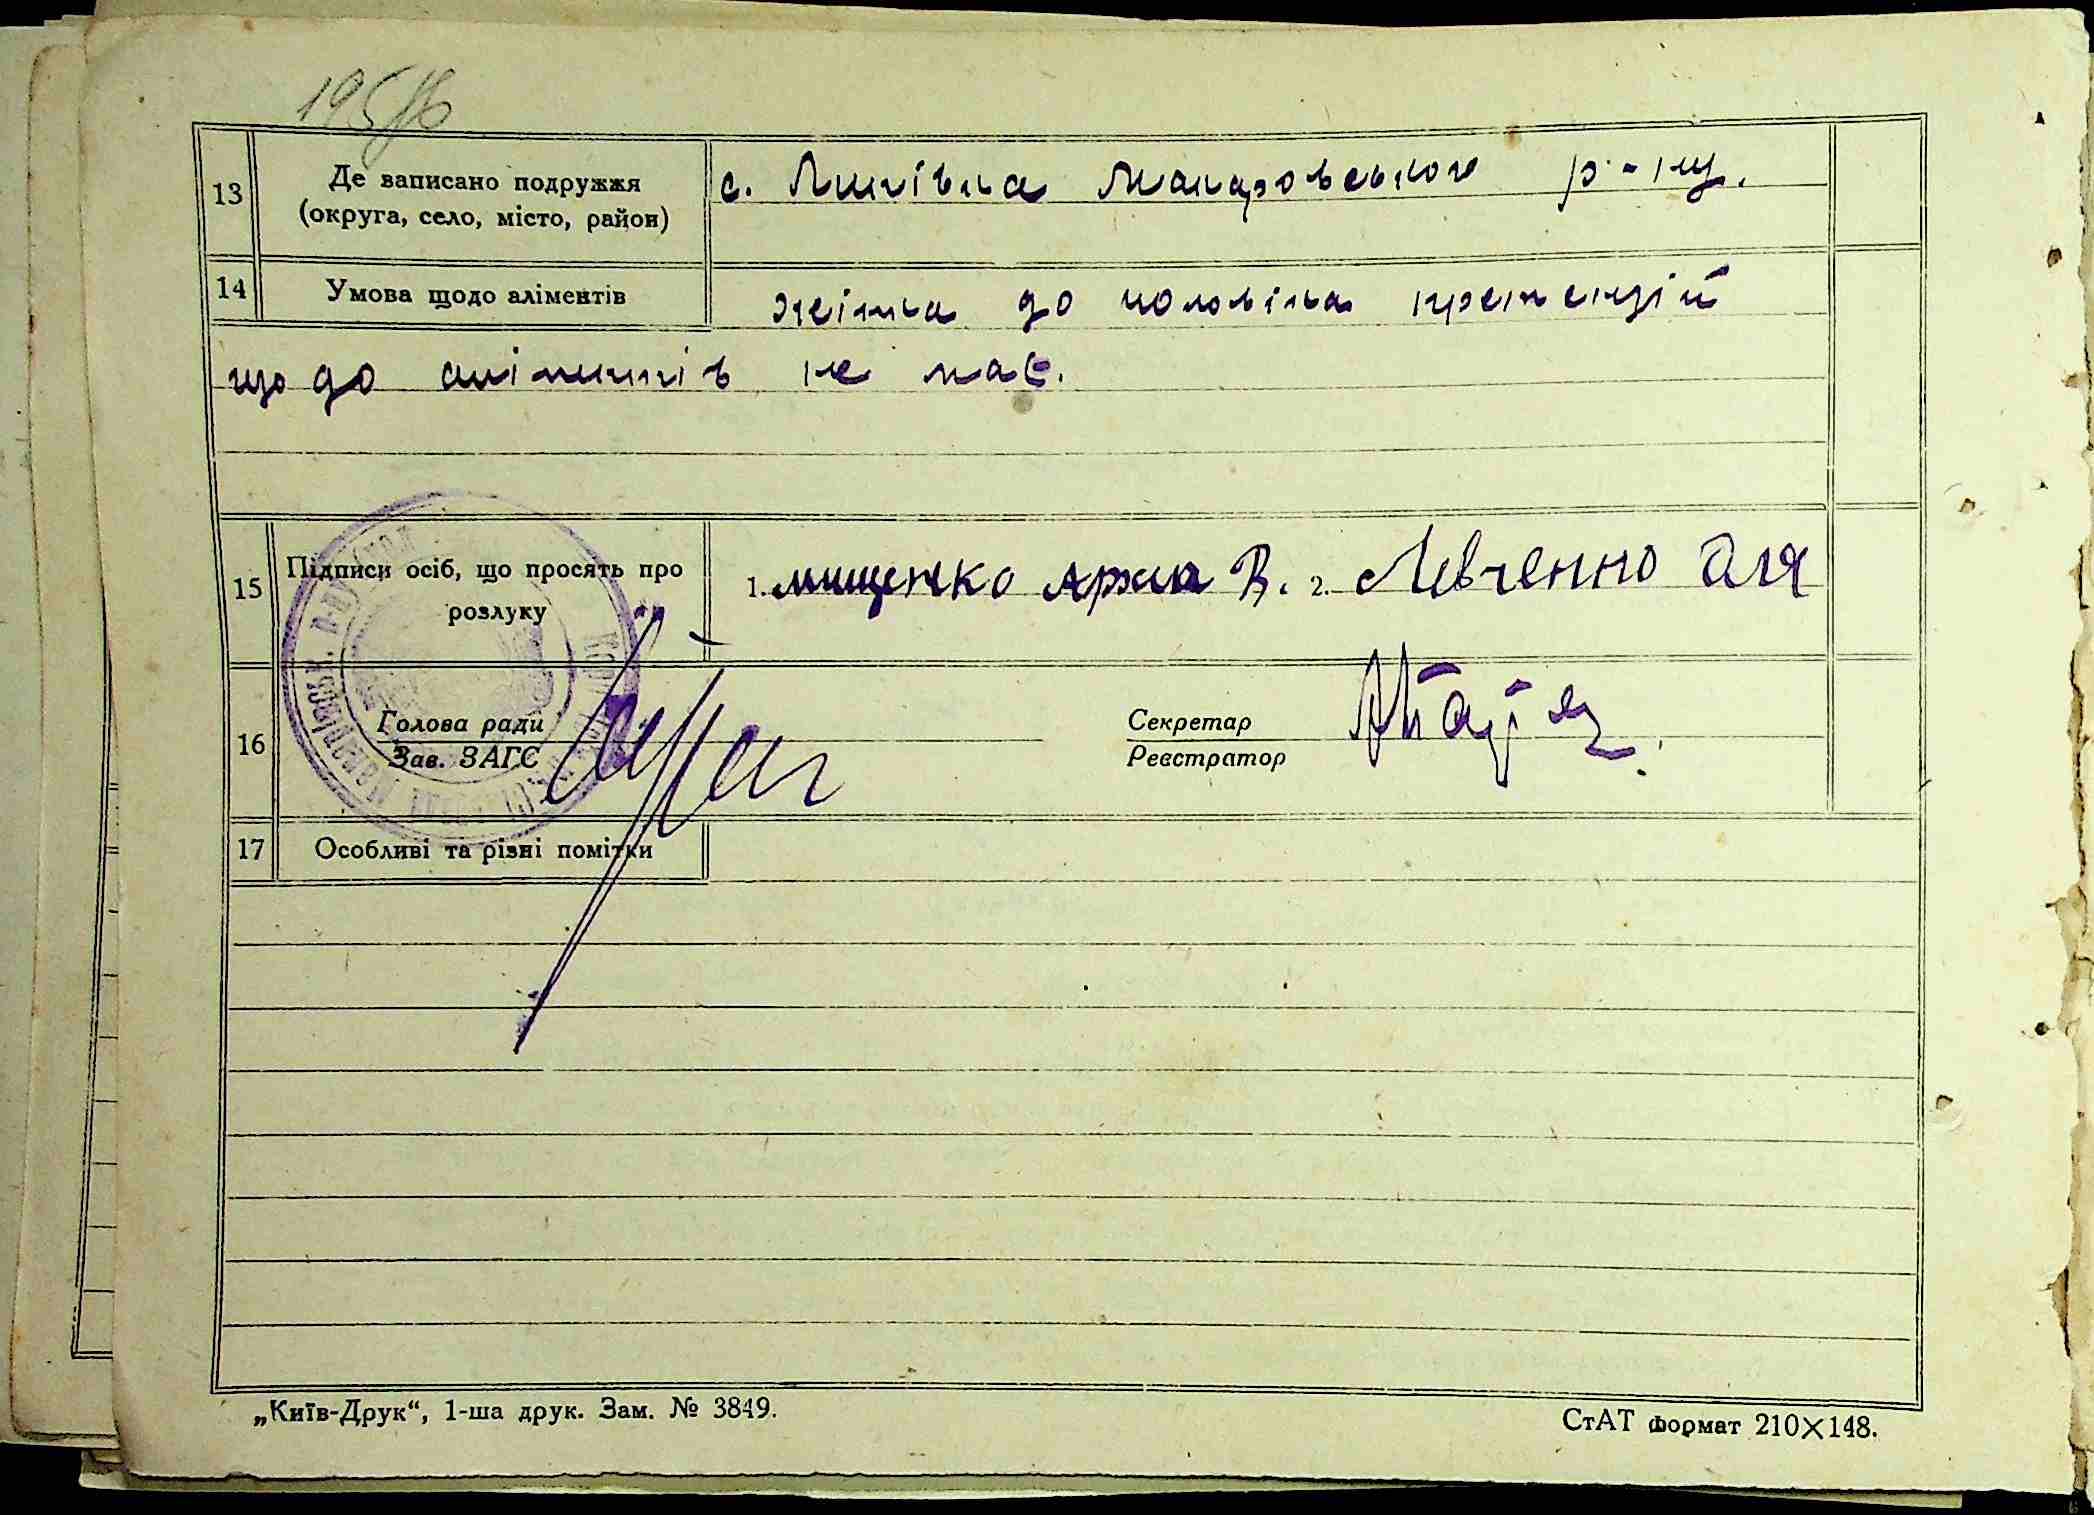 195
13
Де записано подружжя
(округа, село, місто, район)
с. Липівка Макаровського р-ну.
14
Умова щодо аліментів
жінка до чоловіка претензій
що до аліментів не має.
15
Підписи осіб, що просять про
розлуку
1. Мищенко В. 2. Левченко Оля
16
Голова ради
Зав. ЗАГС
Секретар
Реєстратор
17
Особливі та різні помітки
„Київ-Друк“, 1-ша друк. Зам. № 3849.
СтАТ формат 210×148.